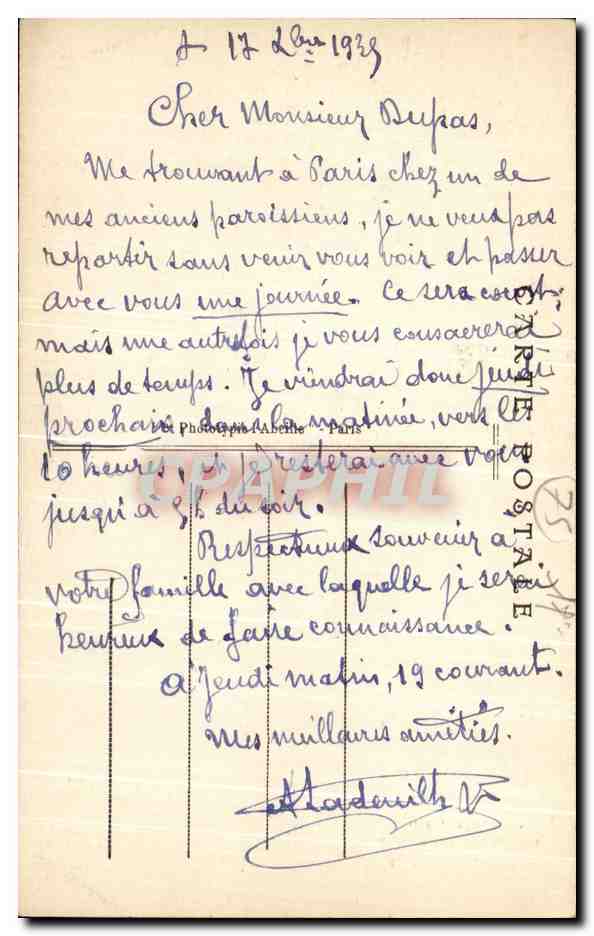 17 1935
Cher Monsieur Dupas,
Me trouvant à Paris chez un de
mes anciens paroissiens, je ne veux pas
repartir sans venir vous voir et passer
avec vous une journée. Ce sera court
mais une autrefois je vous consacrerai
plus de temps. Je viendrai donc jeudi
prochain dans la matinée, vers les
10 heures, et je resterai avec vous
jusqu'à 5h du soir.
Respectueux souvenir à
votre famille avec laquelle je serai
heureux de faire connaissance.
A Jeudi matin, 19 courant.
Mes meilleures amitiés.
CARTE POSTALE
et Phototypie l'Abeille - Paris
CPAPHIL
75